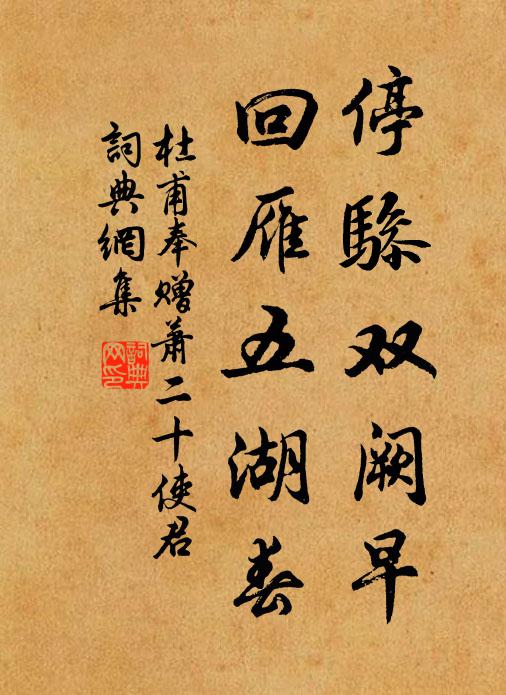 停骖双阙早
回雁五湖春
杜甫奉赠萧二十使君
詞典網集
詞典网印